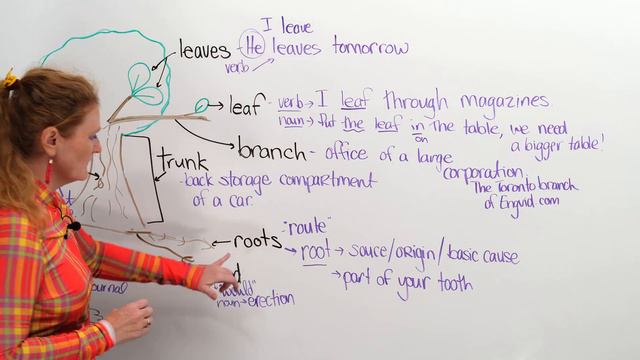 I leave
leaves - He leaves tomorrow
verb
leaf - verb → I leaf through magazines
noun → Put the leaf in the table, we need
on
a bigger table!
branch - office of a large
corporation
The Toronto branch
of Engvid.com
trunk
- back storage compartment
of a car.
"route"
roots
root → source/origin/basic cause
→ part of your tooth
noun → erection